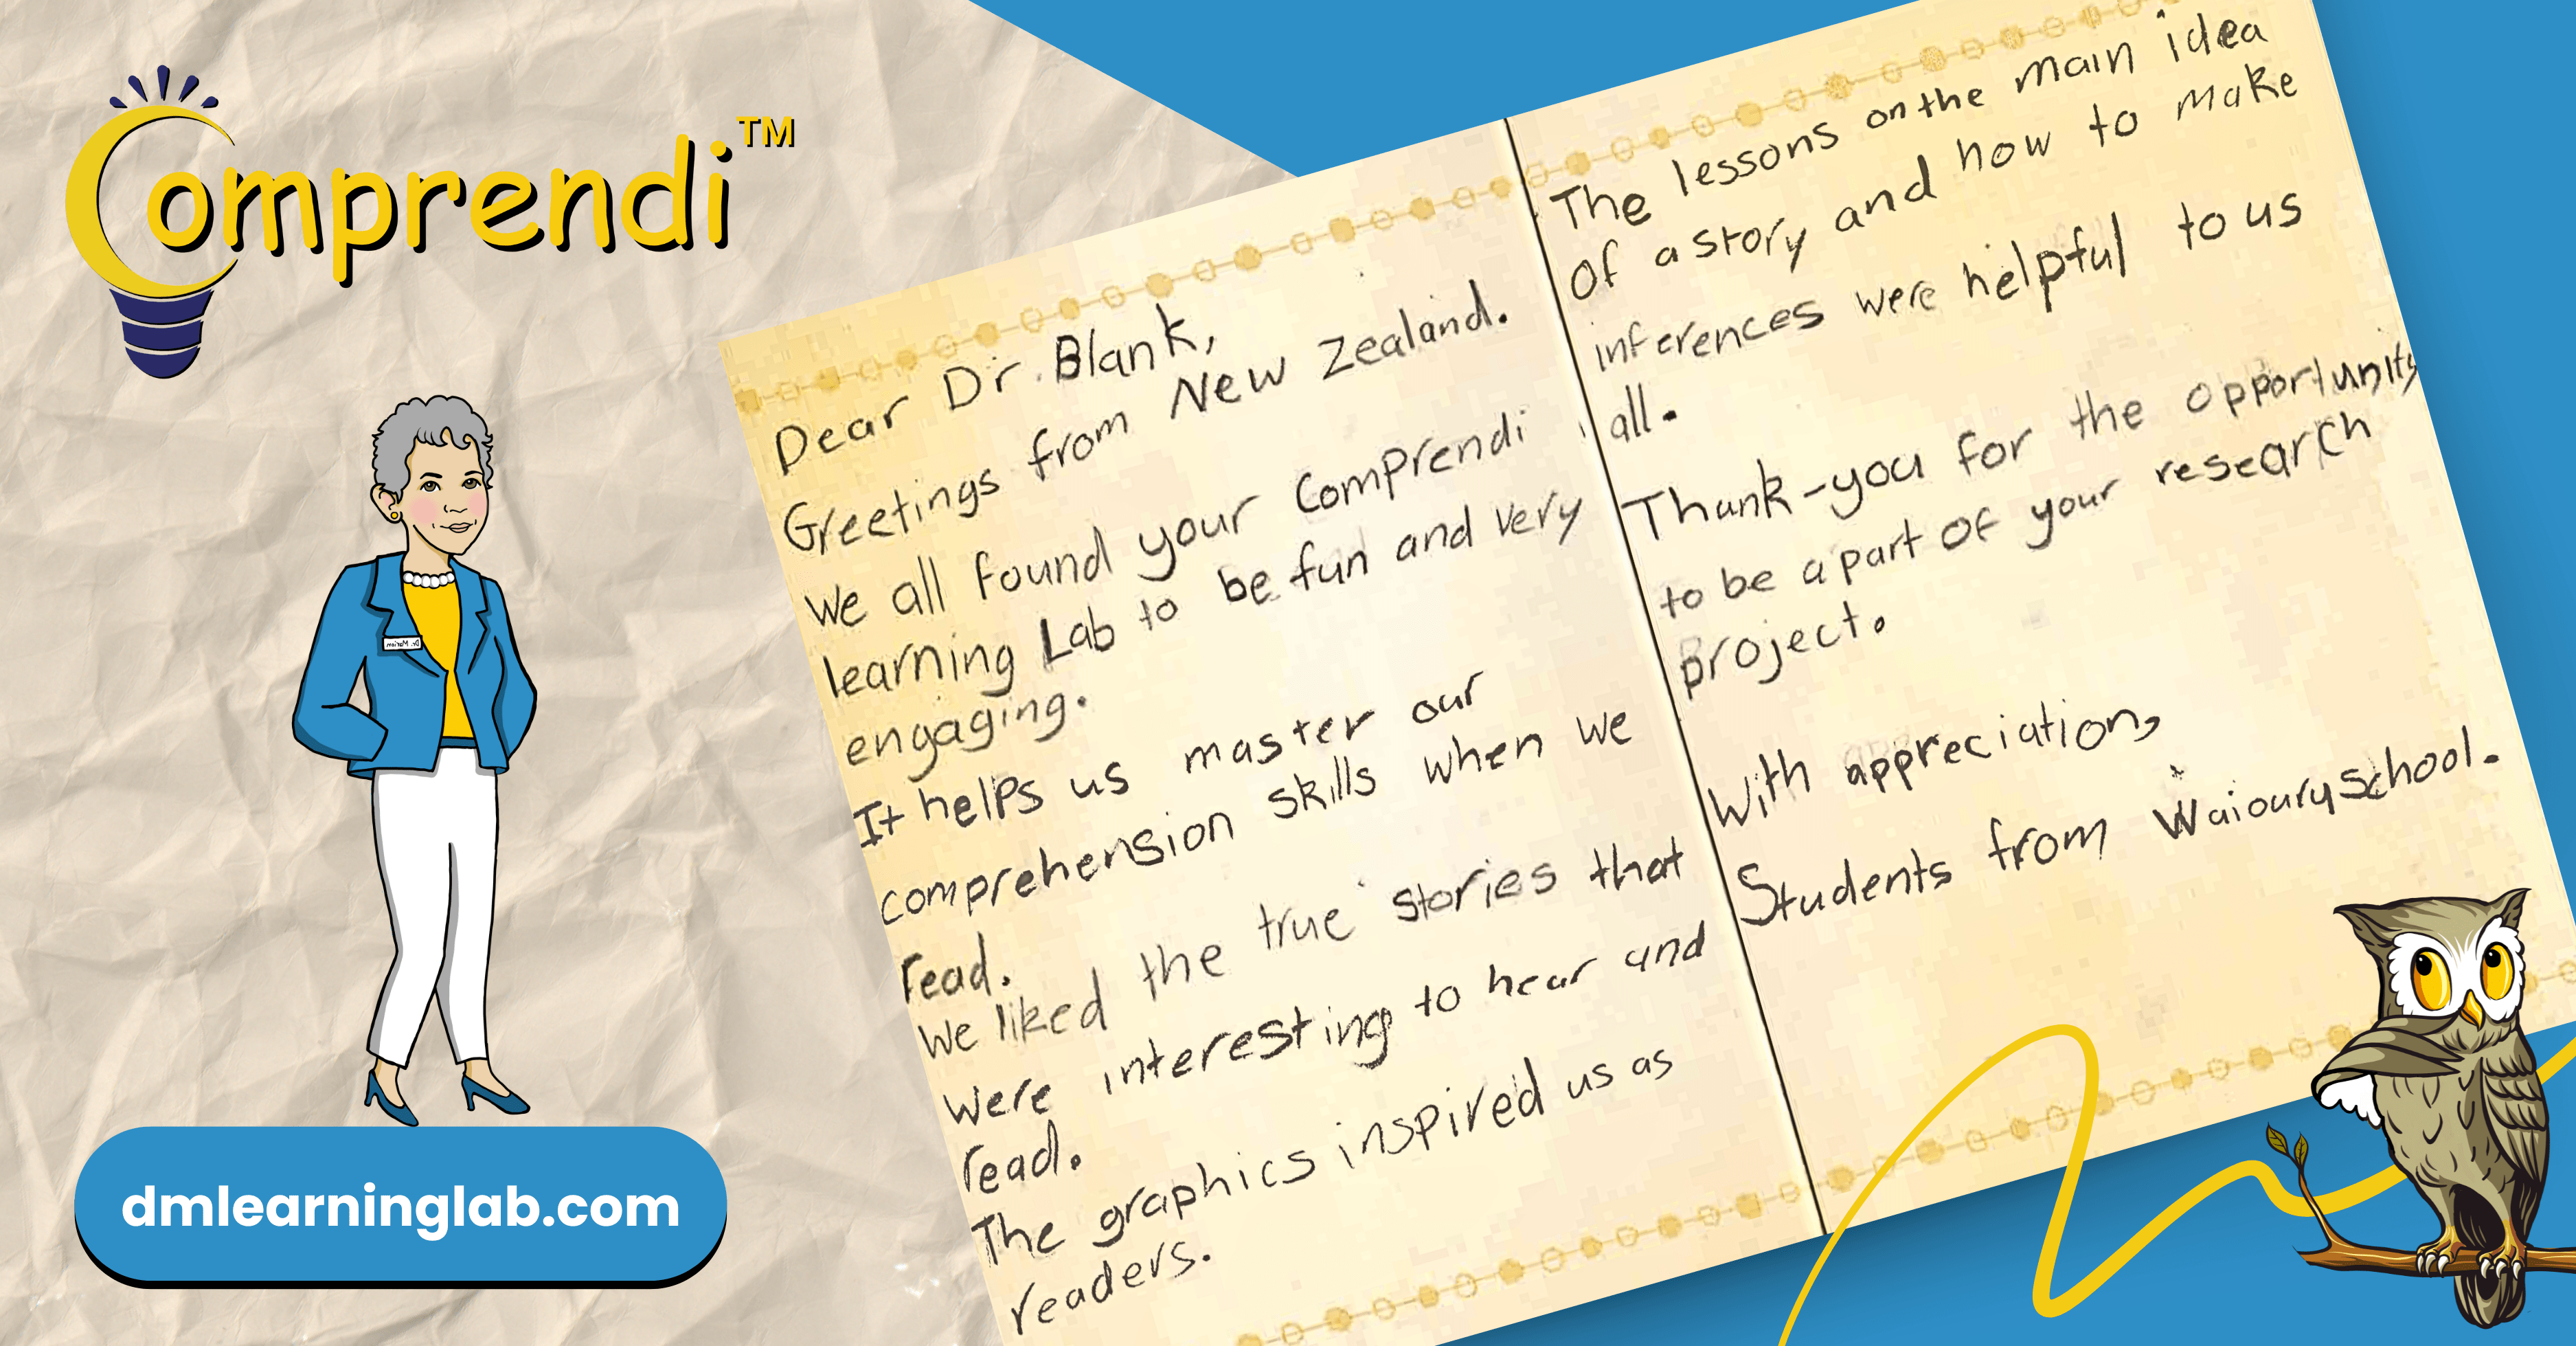 Comprendi™
Dr. Mariam
dmlearninglab.com
Dear Dr. Blank,
Greetings from New Zealand.
We all found your Comprendi
learning Lab to be fun and very
engaging.
It helps us master our
comprehension skills when we
read.
We liked the true stories that
were interesting to hear and
read.
The graphics inspired us as
readers.
The lessons on the main idea
of a story and how to make
inferences were helpful to us
all.
Thank-you for the opportunity
to be a part of your research
project.
With appreciation,
Students from Waioury school.